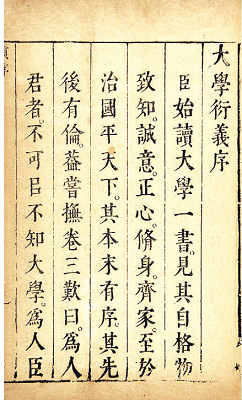 大學衍義序
臣始讀大學一書。見其自格物
致知。誠意。正心。脩身。齊家。至於
治國平天下。其本末有序。其先
後有倫。葢嘗撫卷三歎曰。爲人
君者。不可㠯不知大學。爲人臣